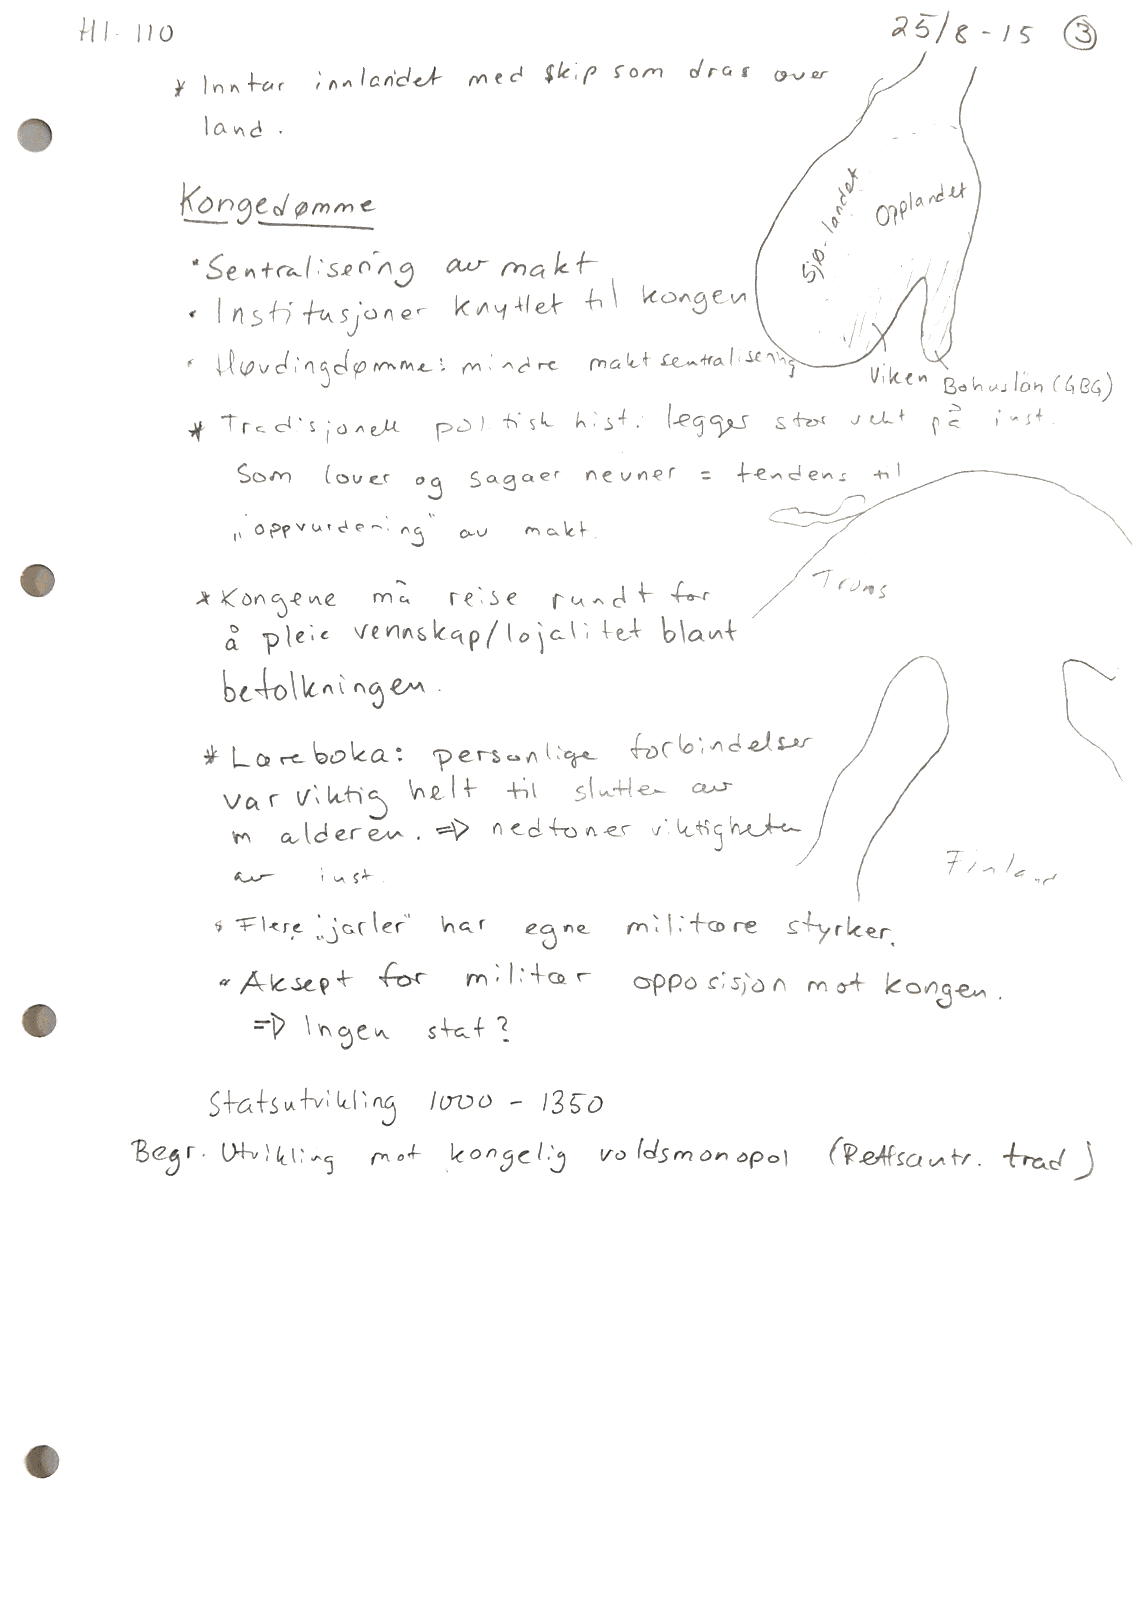 HI. 110
25/8-15 ③
* Inntar innlandet med skip som dras over
land.
Sjø-landet
Opplandet
Kongedømme
• Sentralisering av makt
• Institusjoner knyttet til kongen
• Høvdingdømme: mindre maktsentralisering
Viken Bohuslän (GBG)
* Tradisjonell politisk hist. legger stor vekt på inst.
som lover og sagaer nevner = tendens til
„oppvurdering" av makt.
Troms
* Kongene må reise rundt for
å pleie vennskap/lojalitet blant
befolkningen.
* Læreboka: personlige forbindelser
var viktig helt til slutten av
m alderen. => nedtoner viktigheten
av inst.
Finland
• Flere „jarler" har egne militære styrker.
• Aksept for militær opposisjon mot kongen.
=> Ingen stat?
Statsutvikling 1000 - 1350
Begr. Utvikling mot kongelig voldsmonopol (Rettsantr. trad)